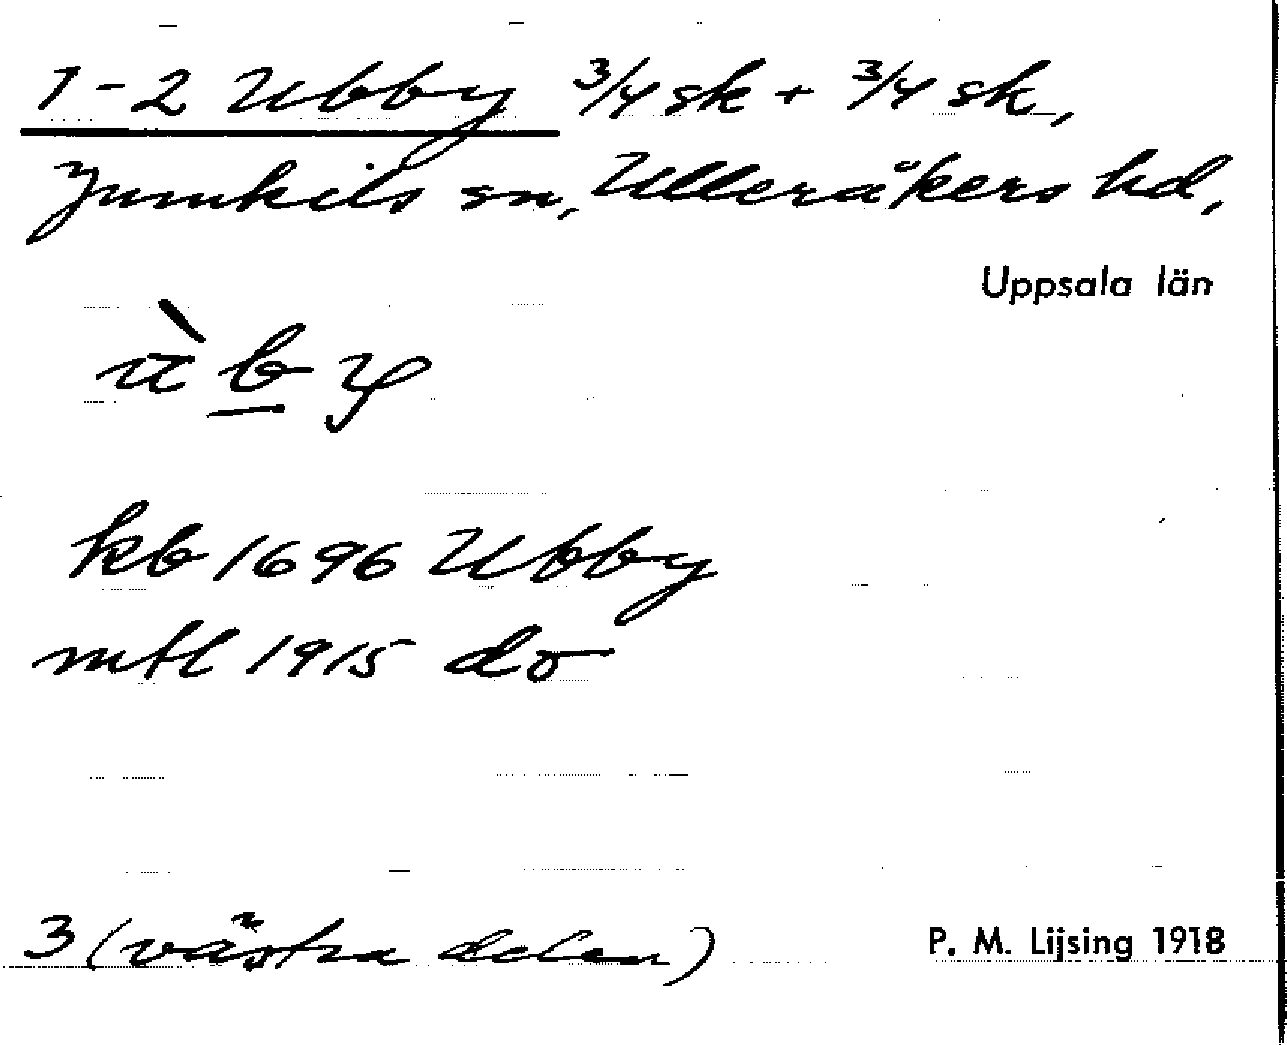 1-2 Ubby 3/4 sk + 3/4 sk,
Jumkils sn, Ulleråkers hd,
Uppsala län
kb 1696 Ubby
mtl 1915 do
3 (västra delen)
P. M. Lijsing 1918